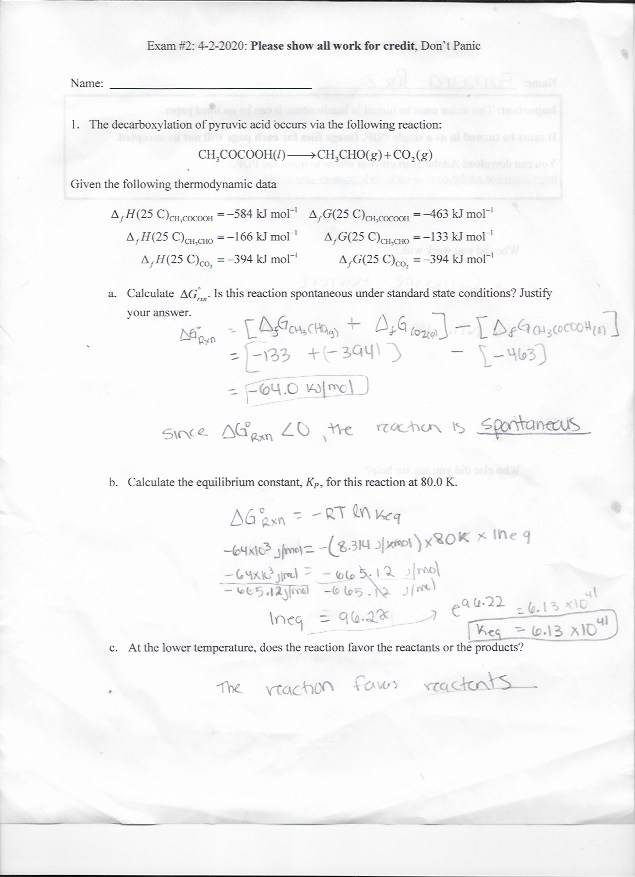 Exam #2: 4-2-2020: Please show all work for credit, Don't Panic
Name:
1. The decarboxylation of pyruvic acid occurs via the following reaction:
CH₃COCOOH(l) ⟶ CH₃CHO(g) + CO₂(g)
Given the following thermodynamic data
Δ_f H(25 C)_CH₃COCOOH = −584 kJ mol⁻¹ Δ_f G(25 C)_CH₃COCOOH = −463 kJ mol⁻¹
Δ_f H(25 C)_CH₃CHO = −166 kJ mol⁻¹ Δ_f G(25 C)_CH₃CHO = −133 kJ mol⁻¹
Δ_f H(25 C)_CO₂ = −394 kJ mol⁻¹ Δ_f G(25 C)_CO₂ = −394 kJ mol⁻¹
a. Calculate ΔG°_rxn. Is this reaction spontaneous under standard state conditions? Justify
your answer.
ΔG°_Rxn = [Δ_f G CH₃CHO(g) + Δ_f G CO₂(g)] − [Δ_f G CH₃COCOOH(l)]
= [−133 + (−394)] − [−463]
= −64.0 kJ/mol
Since ΔG°_Rxn < 0, the reaction is spontaneous
b. Calculate the equilibrium constant, K_P, for this reaction at 80.0 K.
ΔG°_Rxn = −RT ln Keq
−64x10³ J/mol = −(8.314 J/kmol) x 80K x lneq
−64x10³ J/mol = −665.12 J/mol
−665.12 J/mol −665.12 J/mol
lneq = 96.22 → e^96.22 = 6.13 x10⁴¹
Keq = 6.13 x10⁴¹
c. At the lower temperature, does the reaction favor the reactants or the products?
The reaction favors reactants